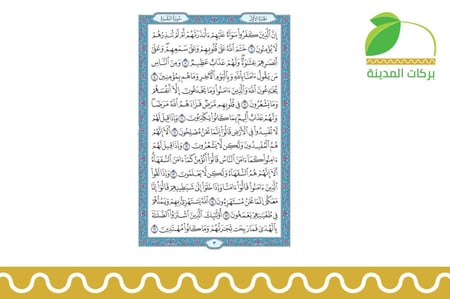 الجزء الأول
سورة البقرة
إِنَّ الَّذِينَ كَفَرُوا سَوَاءٌ عَلَيْهِمْ ءَأَنذَرْتَهُمْ أَمْ لَمْ تُنذِرْهُمْ
لَا يُؤْمِنُونَ ٦ خَتَمَ اللَّهُ عَلَىٰ قُلُوبِهِمْ وَعَلَىٰ سَمْعِهِمْ وَعَلَىٰ
أَبْصَارِهِمْ غِشَاوَةٌ وَلَهُمْ عَذَابٌ عَظِيمٌ ٧ وَمِنَ النَّاسِ
مَن يَقُولُ ءَامَنَّا بِاللَّهِ وَبِالْيَوْمِ الْآخِرِ وَمَا هُم بِمُؤْمِنِينَ ٨
يُخَادِعُونَ اللَّهَ وَالَّذِينَ ءَامَنُوا وَمَا يَخْدَعُونَ إِلَّا أَنفُسَهُمْ
وَمَا يَشْعُرُونَ ٩ فِي قُلُوبِهِم مَّرَضٌ فَزَادَهُمُ اللَّهُ مَرَضًا
وَلَهُمْ عَذَابٌ أَلِيمٌ بِمَا كَانُوا يَكْذِبُونَ ١٠ وَإِذَا قِيلَ لَهُمْ
لَا تُفْسِدُوا فِي الْأَرْضِ قَالُوا إِنَّمَا نَحْنُ مُصْلِحُونَ ١١ أَلَا إِنَّهُمْ
هُمُ الْمُفْسِدُونَ وَلَٰكِن لَّا يَشْعُرُونَ ١٢ وَإِذَا قِيلَ لَهُمْ
ءَامِنُوا كَمَا ءَامَنَ النَّاسُ قَالُوا أَنُؤْمِنُ كَمَا ءَامَنَ السُّفَهَاءُ
أَلَا إِنَّهُمْ هُمُ السُّفَهَاءُ وَلَٰكِن لَّا يَعْلَمُونَ ١٣ وَإِذَا لَقُوا
الَّذِينَ ءَامَنُوا قَالُوا ءَامَنَّا وَإِذَا خَلَوْا إِلَىٰ شَيَاطِينِهِمْ قَالُوا إِنَّا
مَعَكُمْ إِنَّمَا نَحْنُ مُسْتَهْزِءُونَ ١٤ اللَّهُ يَسْتَهْزِئُ بِهِمْ وَيَمُدُّهُمْ
فِي طُغْيَانِهِمْ يَعْمَهُونَ ١٥ أُولَٰئِكَ الَّذِينَ اشْتَرَوُا الضَّلَالَةَ
بِالْهُدَىٰ فَمَا رَبِحَت تِّجَارَتُهُمْ وَمَا كَانُوا مُهْتَدِينَ ١٦
٣
بركات المدينة